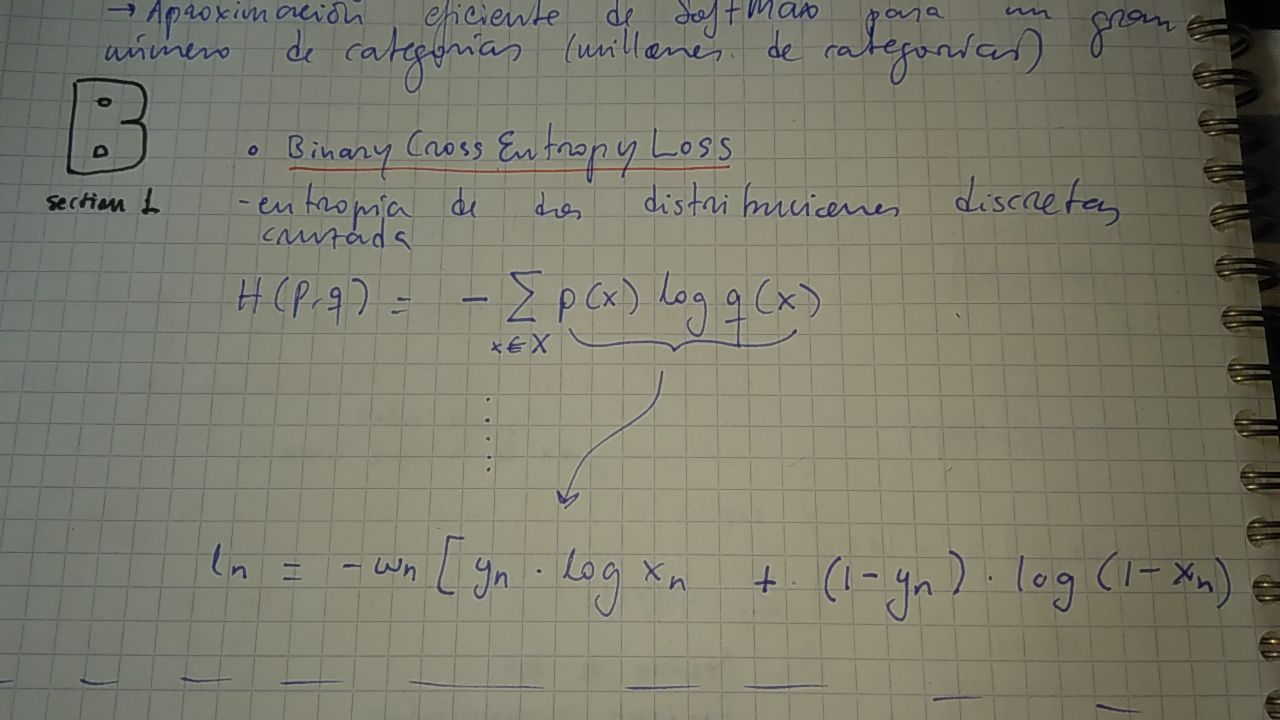 → Aproximación eficiente de Softmax para un gran
número de categorías (millones de categorías)
B
section 1
• Binary Cross Entropy Loss
- entropía de dos distribuciones discretas
cruzada
H(p,q) = - ∑ p(x) log q(x)
x∈X
ln = -wn [ yn · log xn + (1-yn) · log (1-xn)